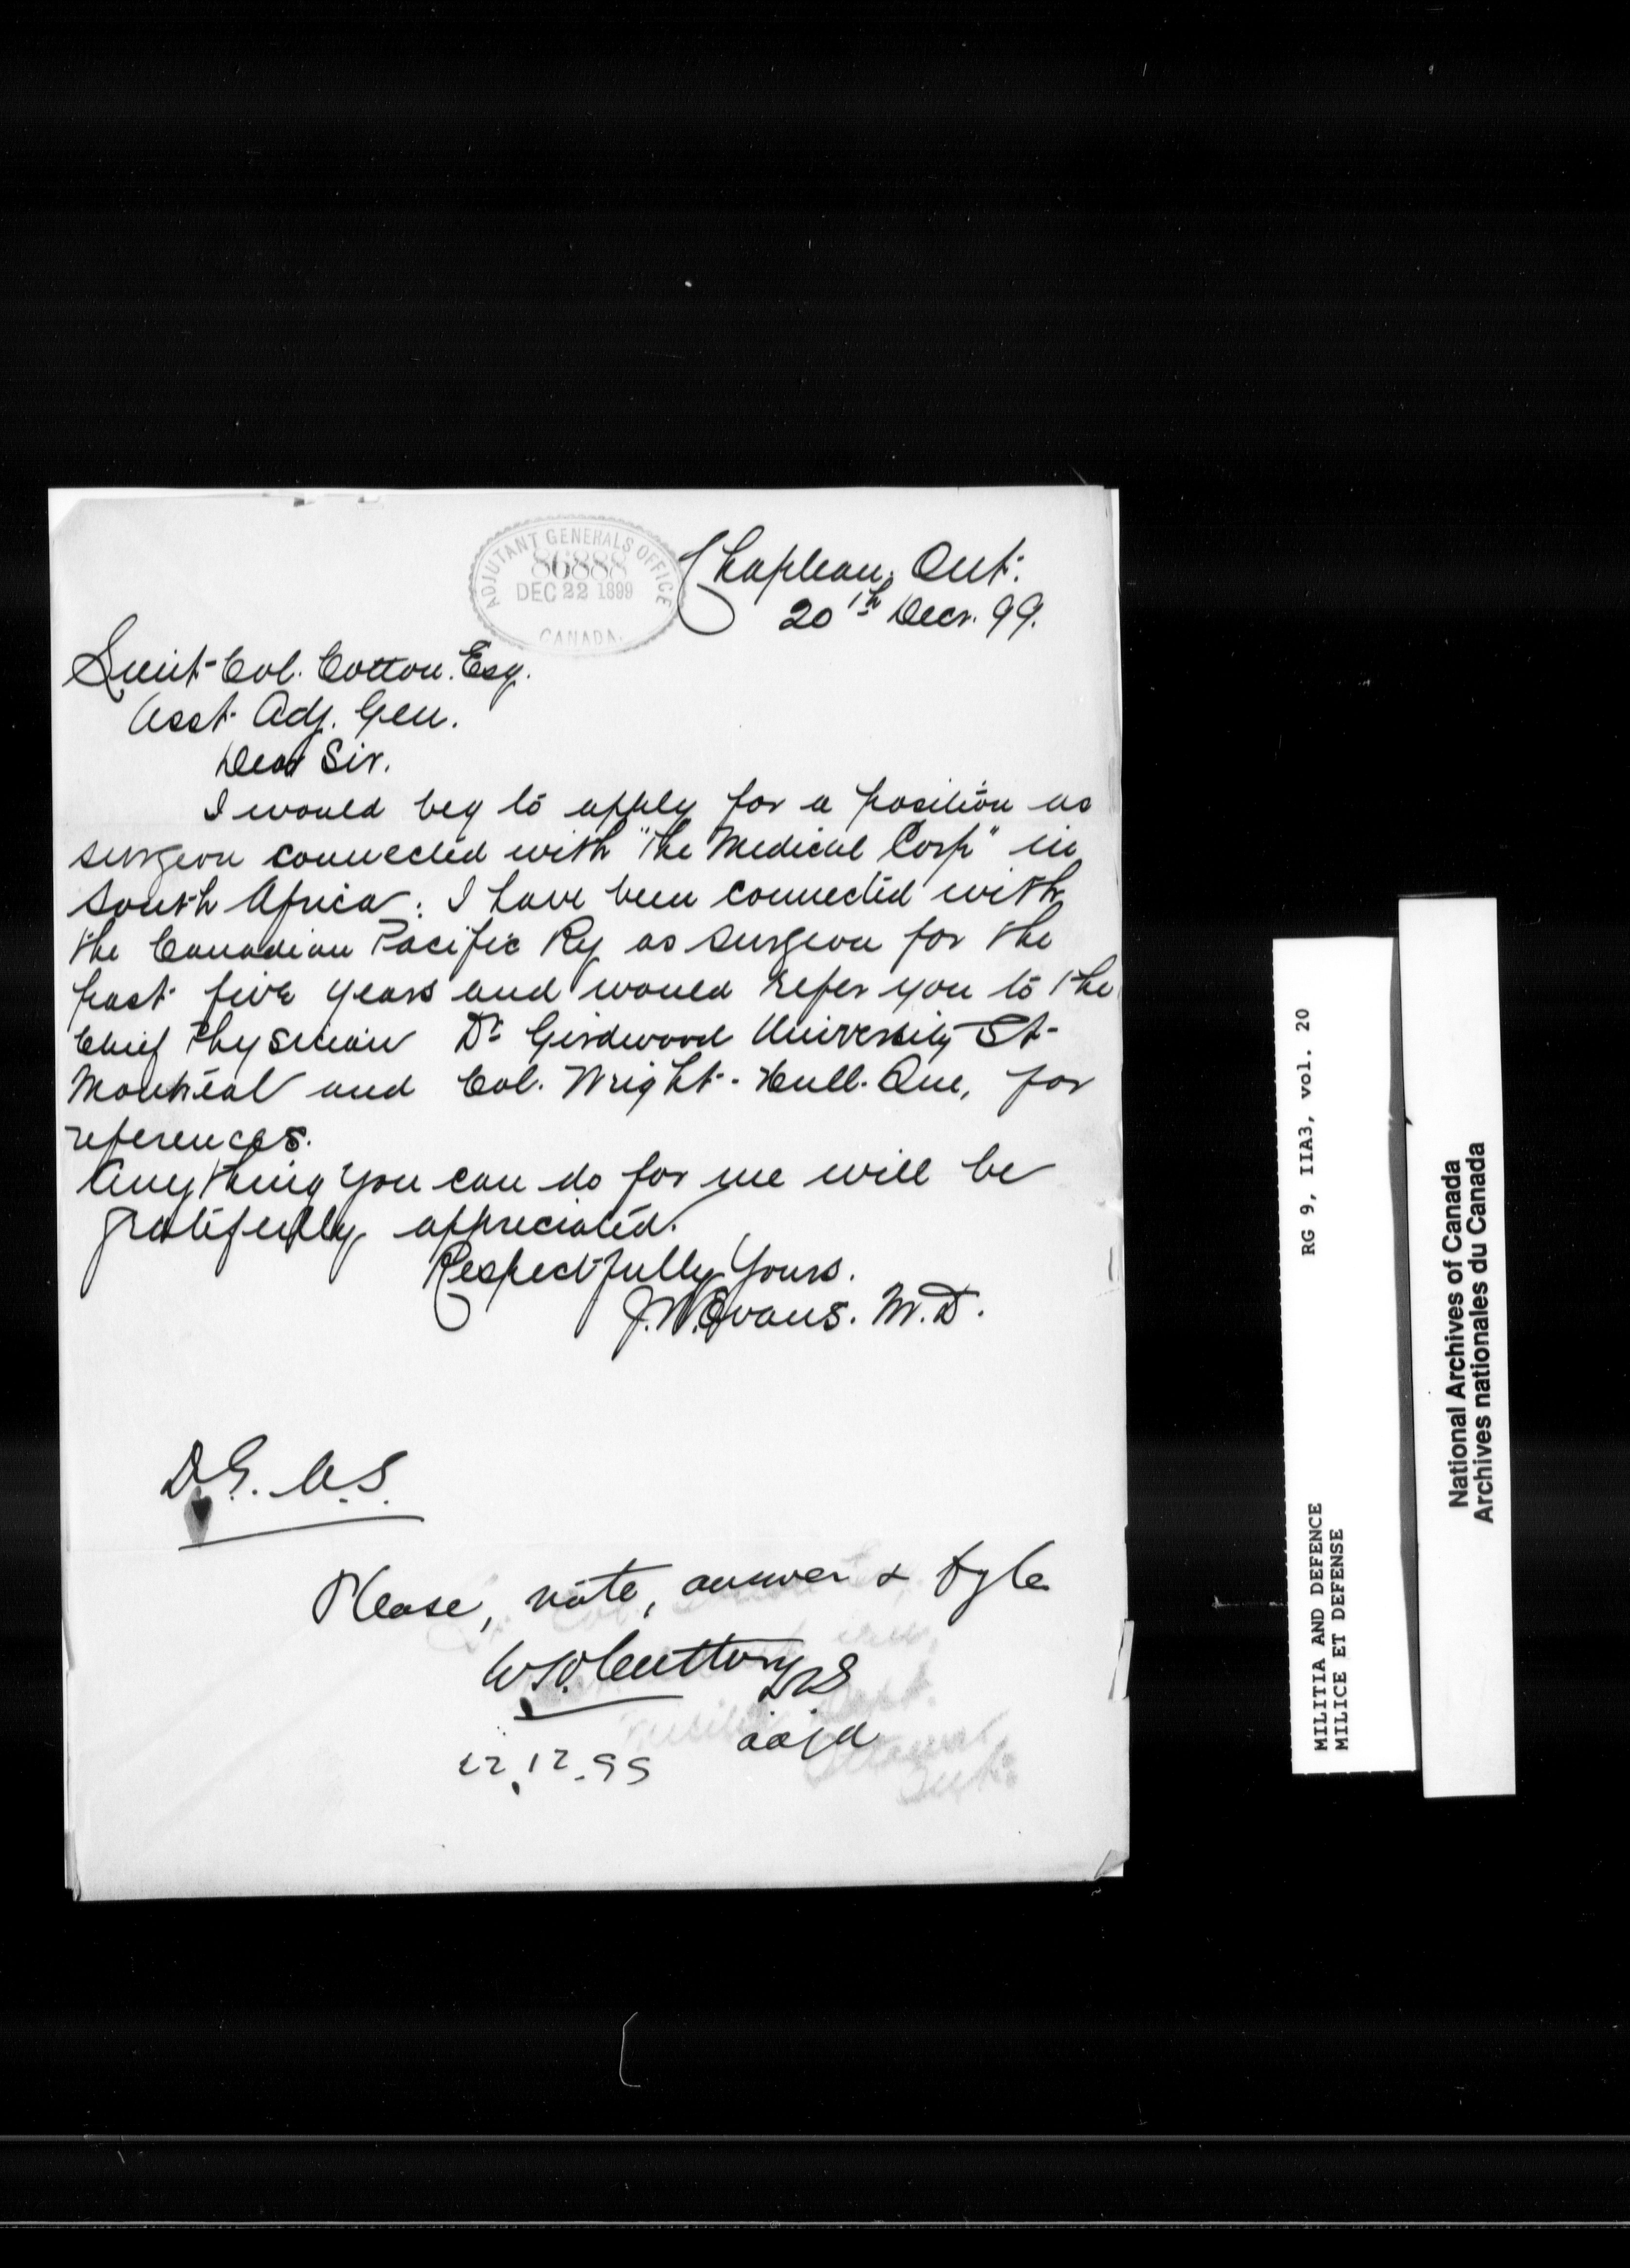 ADJUTANT GENERALS OFFICE
86888
DEC 22 1899
CANADA.
Chapleau, Ont.
20th Decr. 99.
Lieut-Col. Cotton. Esq.
Asst. Adj. Gen.
Dear Sir.
I would beg to apply for a position as
surgeon connected with "The Medical Corp" in
South Africa. I have been connected with
the Canadian Pacific Ry as surgeon for the
past five years and would refer you to the
Chief Physician Dr Girdwood University St-
Montreal and Col. Wright- Hull. Que, for
references.
Anything you can do for me will be
gratefully appreciated.
Respectfully Yours.
J.W. Evans. M.D.
D.G. M.S.
Please, note, answer &
22.12.99
Militia Dept.
Ottawa
Ont.
MILITIA AND DEFENCE RG 9, IIA3, vol. 20
MILICE ET DEFENSE
National Archives of Canada
Archives nationales du Canada